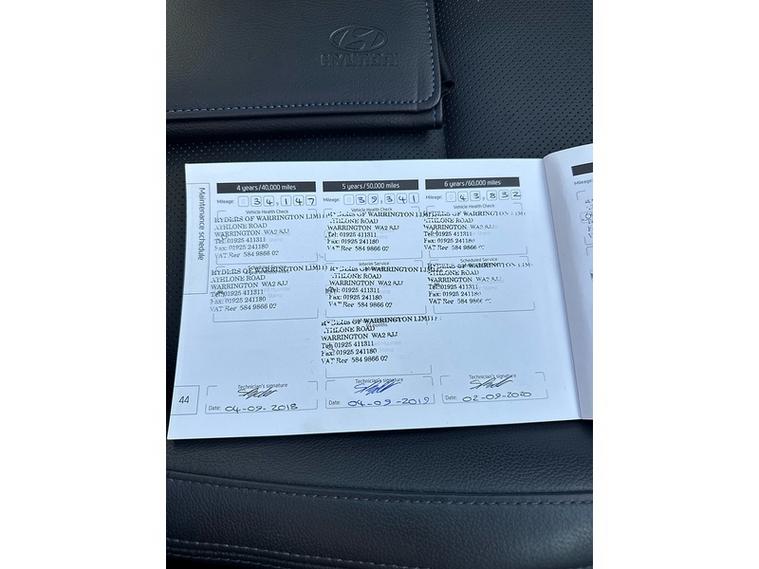 HYUNDAI
Maintenance schedule
4 years/40,000 miles
Mileage: 34,147
Vehicle Health Check
RYDERS OF WARRINGTON LIMITED
ATHLONE ROAD
WARRINGTON WA2 8JJ
Tel: 01925 411311
Fax: 01925 241180
VAT Reg 584 9866 02
RYDERS OF WARRINGTON LIMITED
ATHLONE ROAD
WARRINGTON WA2 8JJ
Tel: 01925 411311
Fax: 01925 241180
VAT Reg 584 9866 02
Technician's signature
Date: 04-09-2018
5 years/50,000 miles
Mileage: 39,341
Vehicle Health Check
RYDERS OF WARRINGTON LIMITED
ATHLONE ROAD
WARRINGTON WA2 8JJ
Tel: 01925 411311
Fax: 01925 241180
VAT Reg 584 9866 02
Interim Service
RYDERS OF WARRINGTON LIMITED
ATHLONE ROAD
WARRINGTON WA2 8JJ
Tel: 01925 411311
Fax: 01925 241180
VAT Reg 584 9866 02
RYDERS OF WARRINGTON LIMITED
ATHLONE ROAD
WARRINGTON WA2 8JJ
Tel: 01925 411311
Fax: 01925 241180
VAT Reg 584 9866 02
Technician's signature
Date: 04-09-2019
6 years/60,000 miles
Mileage: 43,832
Vehicle Health Check
RYDERS OF WARRINGTON LIMITED
ATHLONE ROAD
WARRINGTON WA2 8JJ
Tel: 01925 411311
Fax: 01925 241180
VAT Reg 584 9866 02
Scheduled Service
RYDERS OF WARRINGTON LIMITED
ATHLONE ROAD
WARRINGTON WA2 8JJ
Tel: 01925 411311
Fax: 01925 241180
VAT Reg 584 9866 02
Technician's signature
Date: 02-09-2020
Mileage:
44